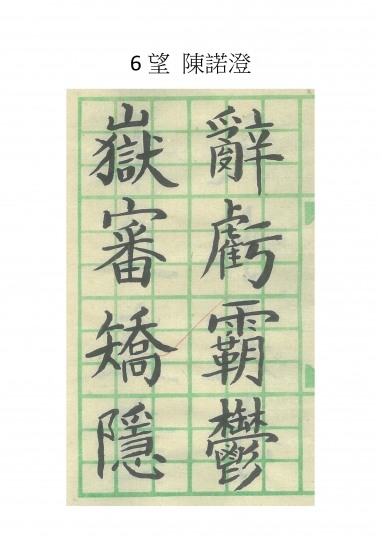 6 望 陳諾澄
辭虧霸鬱
嶽審矯隱